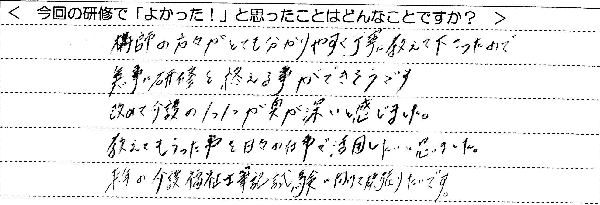 < 今回の研修で「よかった!」と思ったことはどんなことですか? >
講師の方々がとても分かりやすく丁寧に教えて下さったので
無事に研修を終える事ができそうです
改めて介護の1つ1つが奥が深いと感じました。
教えてもらった事を日々の仕事で活用したいと思いました。
来年の介護福祉士筆記試験に向けて頑張りたいです。